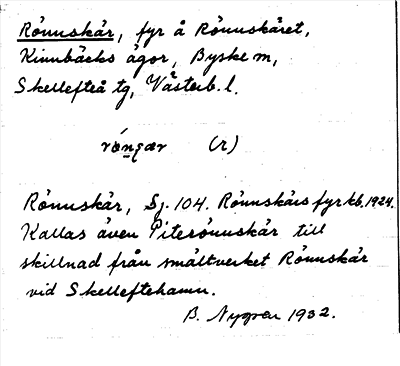 Rönnskär, fyr å Rönnskäret,
Kinnbäcks ägor, Byske sn,
Skellefteå tg, Västerb. l.
(r)
Rönnskär, Sj. 104. Rönnskärs fyrkb. 1924.
Kallas även Piterönnskär till
skillnad från smältverket Rönnskär
vid Skelleftehamn.
B. Nygren 1932.